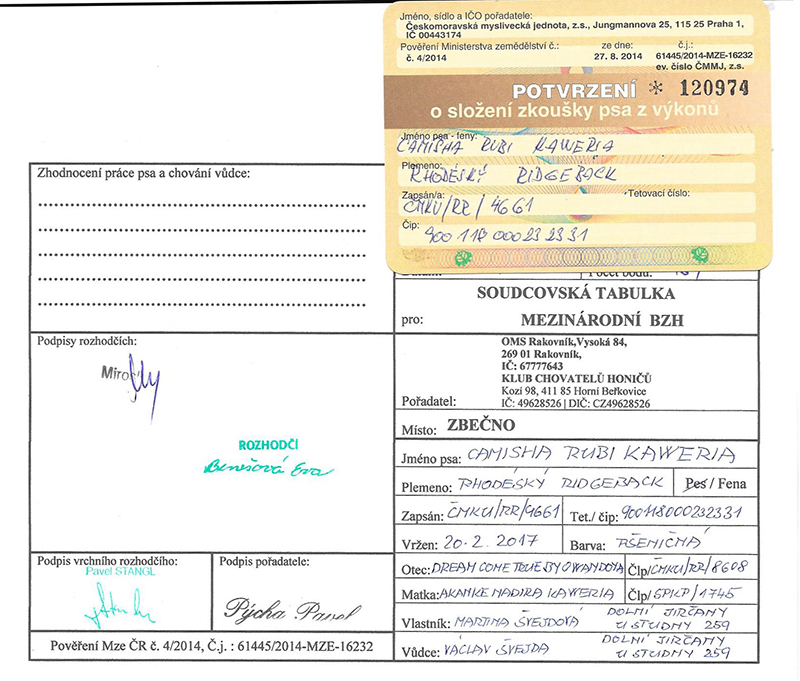 Jméno, sídlo a IČO pořadatele:
Českomoravská myslivecká jednota, z.s., Jungmannova 25, 115 25 Praha 1,
IČ 00443174
Pověření Ministerstva zemědělství č.: ze dne: č.j.:
č. 4/2014 27. 8. 2014 61445/2014-MZE-16232
ev. číslo ČMMJ, z.s.
POTVRZENÍ * 120974
o složení zkoušky psa z výkonů
Jméno psa - feny:
CAMISHA RUBI KAWERIA
Plemeno:
RHODÉSKÝ RIDGEBACK
Zapsán/a: Tetovací číslo:
ČMKU/RR/4661
Čip:
900 118 000 232331
Zhodnocení práce psa a chování vůdce:
Počet bodů:
SOUDCOVSKÁ TABULKA
pro: MEZINÁRODNÍ BZH
Podpisy rozhodčích:
Miros
ROZHODČÍ
Benešová Eva
OMS Rakovník,Vysoká 84,
269 01 Rakovník,
IČ: 67777643
KLUB CHOVATELŮ HONIČŮ
Kozí 98, 411 85 Horní Beřkovice
Pořadatel: IČ: 49628526 | DIČ: CZ49628526
Místo: ZBEČNO
Jméno psa: CAMISHA RUBI KAWERIA
Plemeno: RHODÉSKÝ RIDGEBACK Pes / Fena
Zapsán: ČMKU/RR/4661 Tet./ čip: 900118000232331
Vržen: 20.2.2017 Barva: PŠENIČNÁ
Otec: DREAM COME TRUE Člp/ČMKU/RR/3608
Matka: AKANKE MADIRA KAWERIA Člp/SPKP/1745
Vlastník: MARTINA ŠVEJDOVÁ DOLNÍ JIRČANY
U STUDNY 259
Vůdce: VÁCLAV ŠVEJDA DOLNÍ JIRČANY
U STUDNY 259
Podpis vrchního rozhodčího:
Pavel STANGL
Podpis pořadatele:
Pýcha Pavel
Pověření Mze ČR č. 4/2014, Č.j. : 61445/2014-MZE-16232